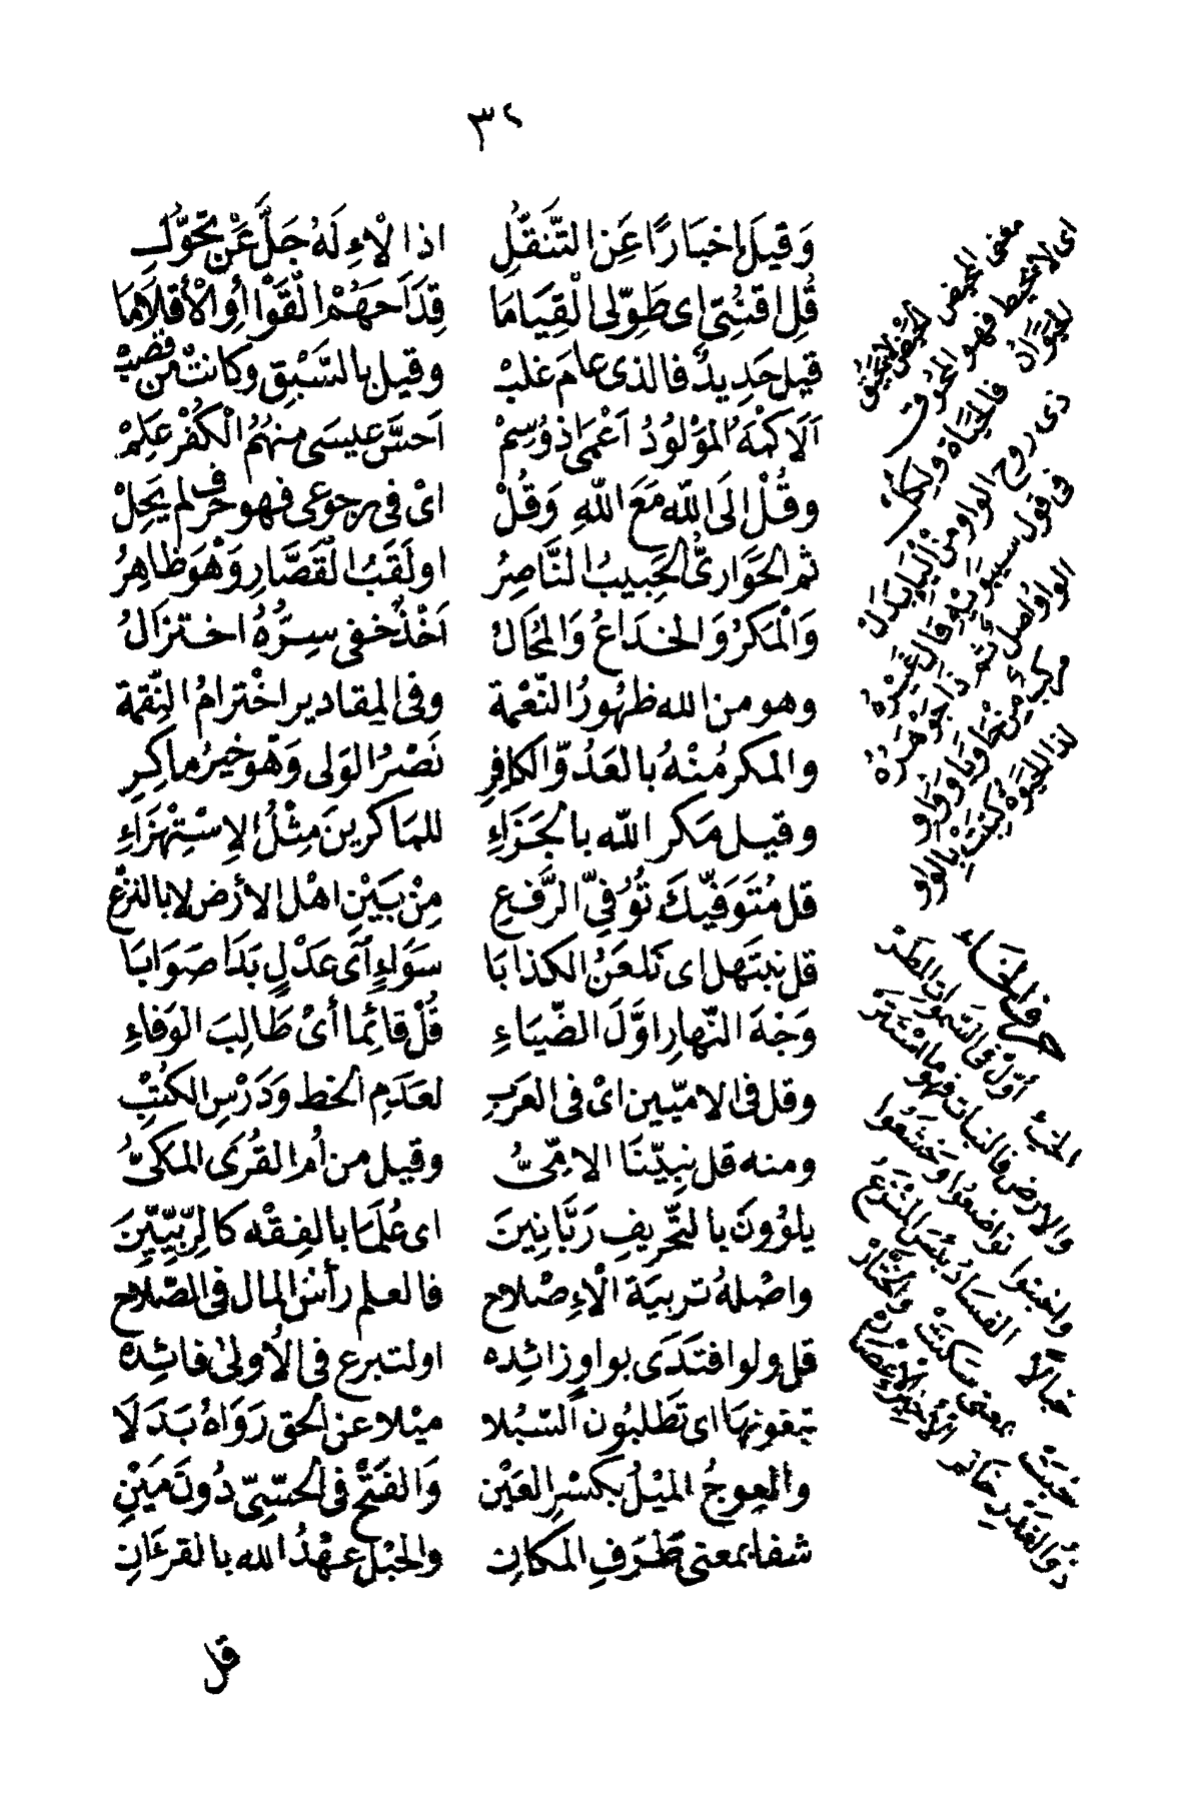 ٣٢
وَقِيلَ إِخبَارًا عَنِ التَّنَقُّلِ اذا لْإِلَهُ جَلَّ عَنْ تَحَوُّلِ
قُلِ اقنُتِى اى طَوِّلى الْقِيَامَا قِدَاحَهُمْ الْقَوْا أوِ الْأقلَامَا
قيل جَدِيدٌ فالذى عامَ غلبْ وقيل بالسَّبْقِ وكانتْ من قصَبْ
اَلَاكمَهُ المَوْلُودُ اَعْمَى ذُو وُسِمْ اَحسَّ عيسَى منهُمُ الْكُفْرَ عَلِمْ
وقُلْ الَى اللّهِ مَعَ اللّهِ وَقُلْ اىْ فى رجوعى فهو حرْف لم يَحِلْ
ثم الحَوَارىُّ الحَبِيبُ النَّاصِرُ اولَقَبُ القَصَّارِ وَهْوَ ظَاهِرُ
وَالْمَكرُ وَالخدَاعُ وَالمحَالُ اَخْذٌ خفى سِرُّهُ اختزَالُ
وهو من الله ظهُورُ النّعْمة وفى المِقادير اخْترامُ النِّقمة
والمكر مُنْهُ بالعَدُوّ الكافِرِ نَصْرُ الوَلى وَهْوَ خيرُ ماكِرِ
وقيل مَكر اللّه بالجَزَاءِ للمَاكرينَ مِثْلُ الِاسْتِهْزَاءِ
قل مُتَوَفّيكَ تُوُفِىّ الرَّفعِ مِنْ بَيْنِ اهْل الارْض لا بالنزْعِ
قل نبتَهل اى نَلعَنُ الكذابَا سَوَاءٍ اَى عَدْلٍ بَدَا صَوَابَا
وَجْهَ النّهارِ اوَّلَ الضّيَاءِ قُلْ قائِما أىْ طَالِبَ الوَفاءِ
وقل فى الامّيّين اىْ فى العَرَبِ لعَدَمِ الخط وَدَرْسِ الكتْبِ
ومنه قل نبِيّنَا الامّىُّ وقيل من اُم القُرَى المَكىُّ
يلوُونَ بالتّحريفِ رَبَّانِينَ اى عُلَمَا بالفِقْه كالرِّبِّيِّينَ
واصْلهُ تربيَة الْإِصْلاح فالعلم رأسُ المال فى الصّلاح
قل ولو افتَدَى بواوٍ زائِده اولتبرع فى الأُولىٰ فائِده
تبغونهَا اى تَطلبُون السّبُلا ميْلا عن الحق رَوَاهُ بَدَلَا
والعِوجُ الميْلُ بكسْرِ العَيْن وَالفَتْح فى الحسّىِّ دُونَ مَيْنِ
شفا بمعنى طَرَفِ المكانِ والحبْل عهْدُ الله بالقرءانِ
قل
معنى المحيض الحَيْض لا يحيق
اى لا يحيط فهو
للحَيَوَانُ فالحَيَاة
ذى روح الواو من اليَا بَدَلْ
فى قول سيبوَيْهِ قال غَيْرُهُ
الواوُ اصل ثم ذا جَوْهَرُهُ
لذا للحَيَوٰه كُتِبَتْ بالواوِ
حرف الخاء
الخبْءُ اوّلْ فى السَّموات المَطَرْ
والارض فالنبات فهو ما استَتَرْ
واخبتوا تواضعُوا وخشَعُوا
خبالًا الفسَادُ
خَبَتْ بمعنى سَكنَتْ والختّارْ
ذُو الغَدْرِ